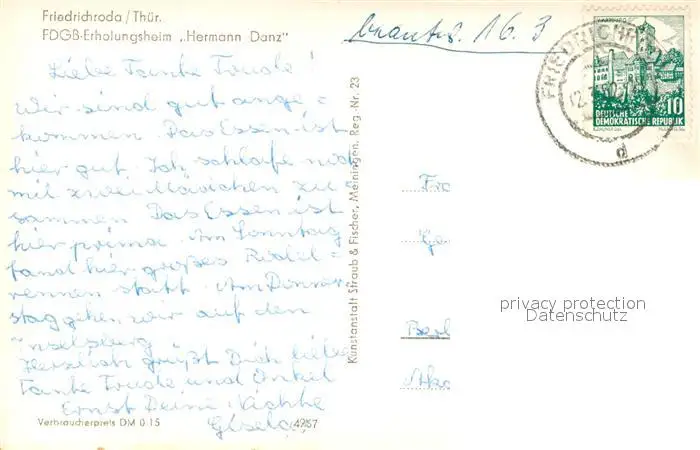 Friedrichroda / Thür.
FDGB-Erholungsheim „Hermann Danz"
beantw. 16. 3
Liebe Tante Trude!
Wir sind gut ange=
kommen. Das Essen ist
hier gut. Ich schlafe noch
mit zwei Mädchen zu=
sammen. Das Essen ist
hier prima. Am Sonntag
fand hier großes Rodel=
rennen statt. Am Donner
stag gehen wir auf den
Inselsburg
Herzlich grüßt Dich liebe
Tante Trude und Onkel
Ernst Deine Nichte
Gisela
Verbraucherpreis DM 0.15
4957
Kunstanstalt Straub & Fischer, Meiningen. Reg.-Nr. 23
WARTBURG
10
DEUTSCHE
DEMOKRATISCHE REPUBLIK
FRIEDRICHRODA
d
Fr
Ge
Berl
privacy protection
Datenschutz